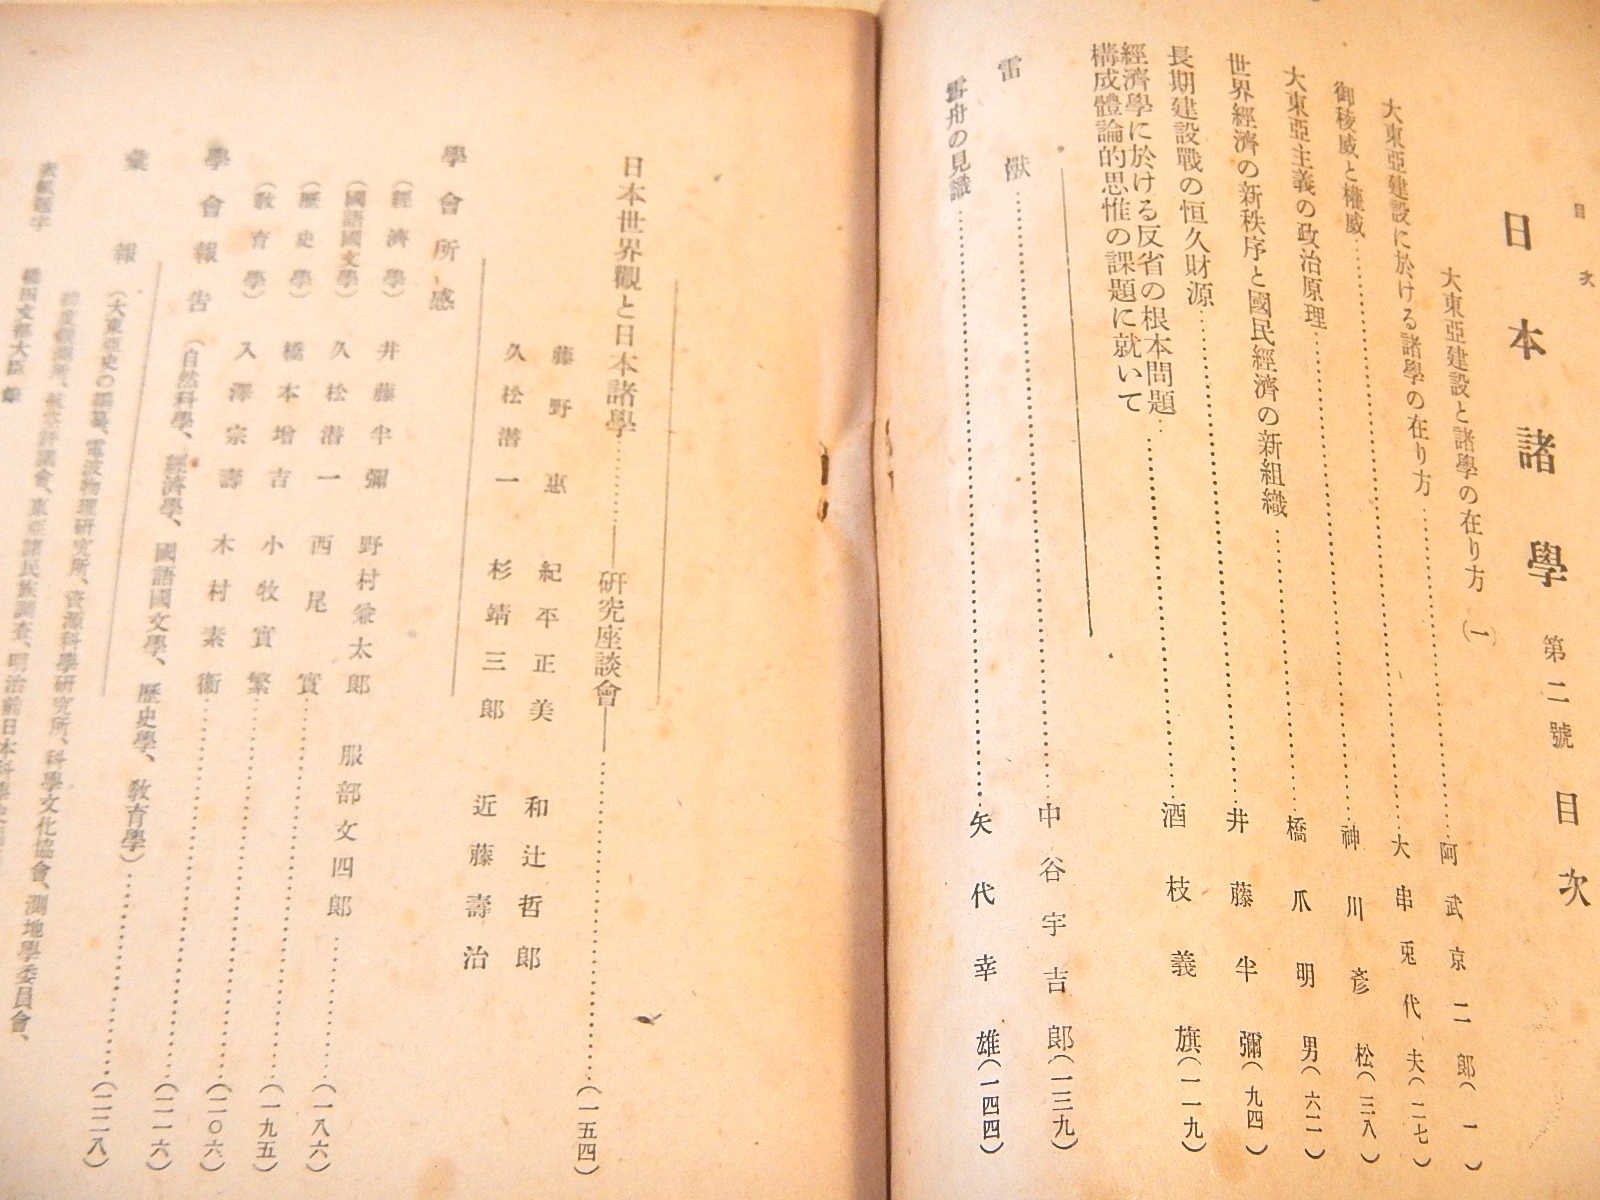 目次
日本諸學 第二號 目次
大東亞建設と諸學の在り方(一)……阿武京二郎(一)
大東亞建設に於ける諸學の在り方……大串兎代夫(二七)
御稜威と權威……神川彥松(三八)
大東亞主義の政治原理……橋爪明男(六二)
世界經濟の新秩序と國民經濟の新組織……井藤半彌(九四)
長期建設戰の恒久財源
經濟學に於ける反省の根本問題
構成體論的思惟の課題に就いて……酒枝義旗(一一九)
雷獸……中谷宇吉郎(一三九)
雪舟の見識……矢代幸雄(一四四)
日本世界觀と日本諸學……―硏究座談會―……(一五四)
藤野惠 紀平正美 和辻哲郎
久松潜一 杉靖三郎 近藤壽治
學會所感
(經濟學) 井藤半彌 野村兼太郎 服部文四郎……(一八六)
(國語國文學) 久松潜一 西尾實……(一九五)
(歷史學) 橋本增吉 小牧實繁……(二〇六)
(敎育學) 入澤宗壽 木村素衞……(二一六)
學會報告(自然科學、經濟學、國語國文學、歷史學、敎育學)……(二二八)
彙報
(大東亞史の編纂、電波物理硏究所、資源科學硏究所、科學文化協會、測地學委員會、
東亞諸民族調査、明治前日本科學史
表紙題字 橋田文部大臣